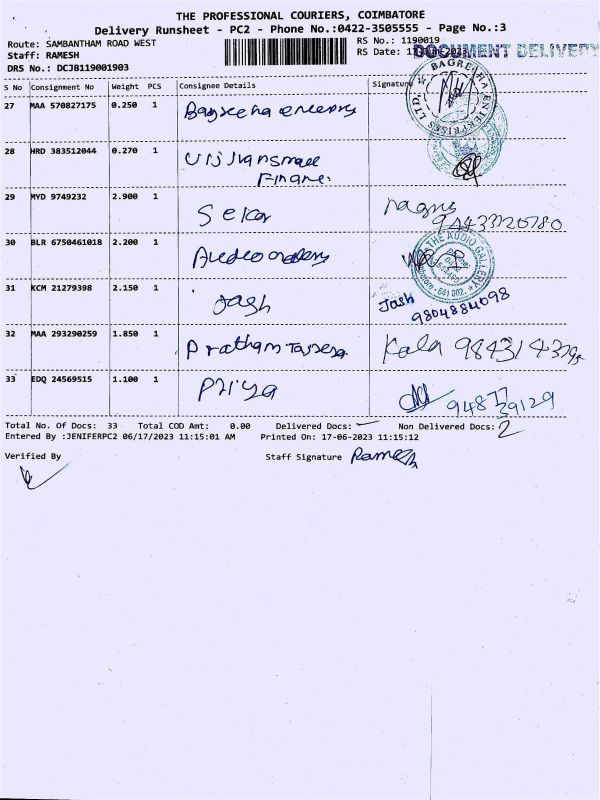 THE PROFESSIONAL COURIERS, COIMBATORE
Delivery Runsheet - PC2 - Phone No.:0422-3505555 - Page No.:3
Route: SAMBANTHAM ROAD WEST RS No.: 1190019
Staff: RAMESH RS Date: 17 DOCUMENT DELIVERY
DRS No.: DCJB119001903
S No Consignment No Weight PCS Consignee Details Signature
27 MAA 570827175 0.250 1
BAGREECHA ENTERPRISES LTD.
28 HRD 383512044 0.270 1
Finance.
29 MYD 9749232 2.900 1 Sekar
30 BLR 6750461018 2.200 1
THE AUDIO GALLERY
641 002.
31 KCM 21279398 2.150 1 Jash Jash
9804884098
32 MAA 293290259 1.850 1 Pratham Kala
33 EDQ 24569515 1.100 1 Priya 94877
39129
Total No. Of Docs: 33 Total COD Amt: 0.00 Delivered Docs: — Non Delivered Docs: 2
Entered By :JENIFERPC2 06/17/2023 11:15:01 AM Printed On: 17-06-2023 11:15:12
Verified By Staff Signature Ramesh